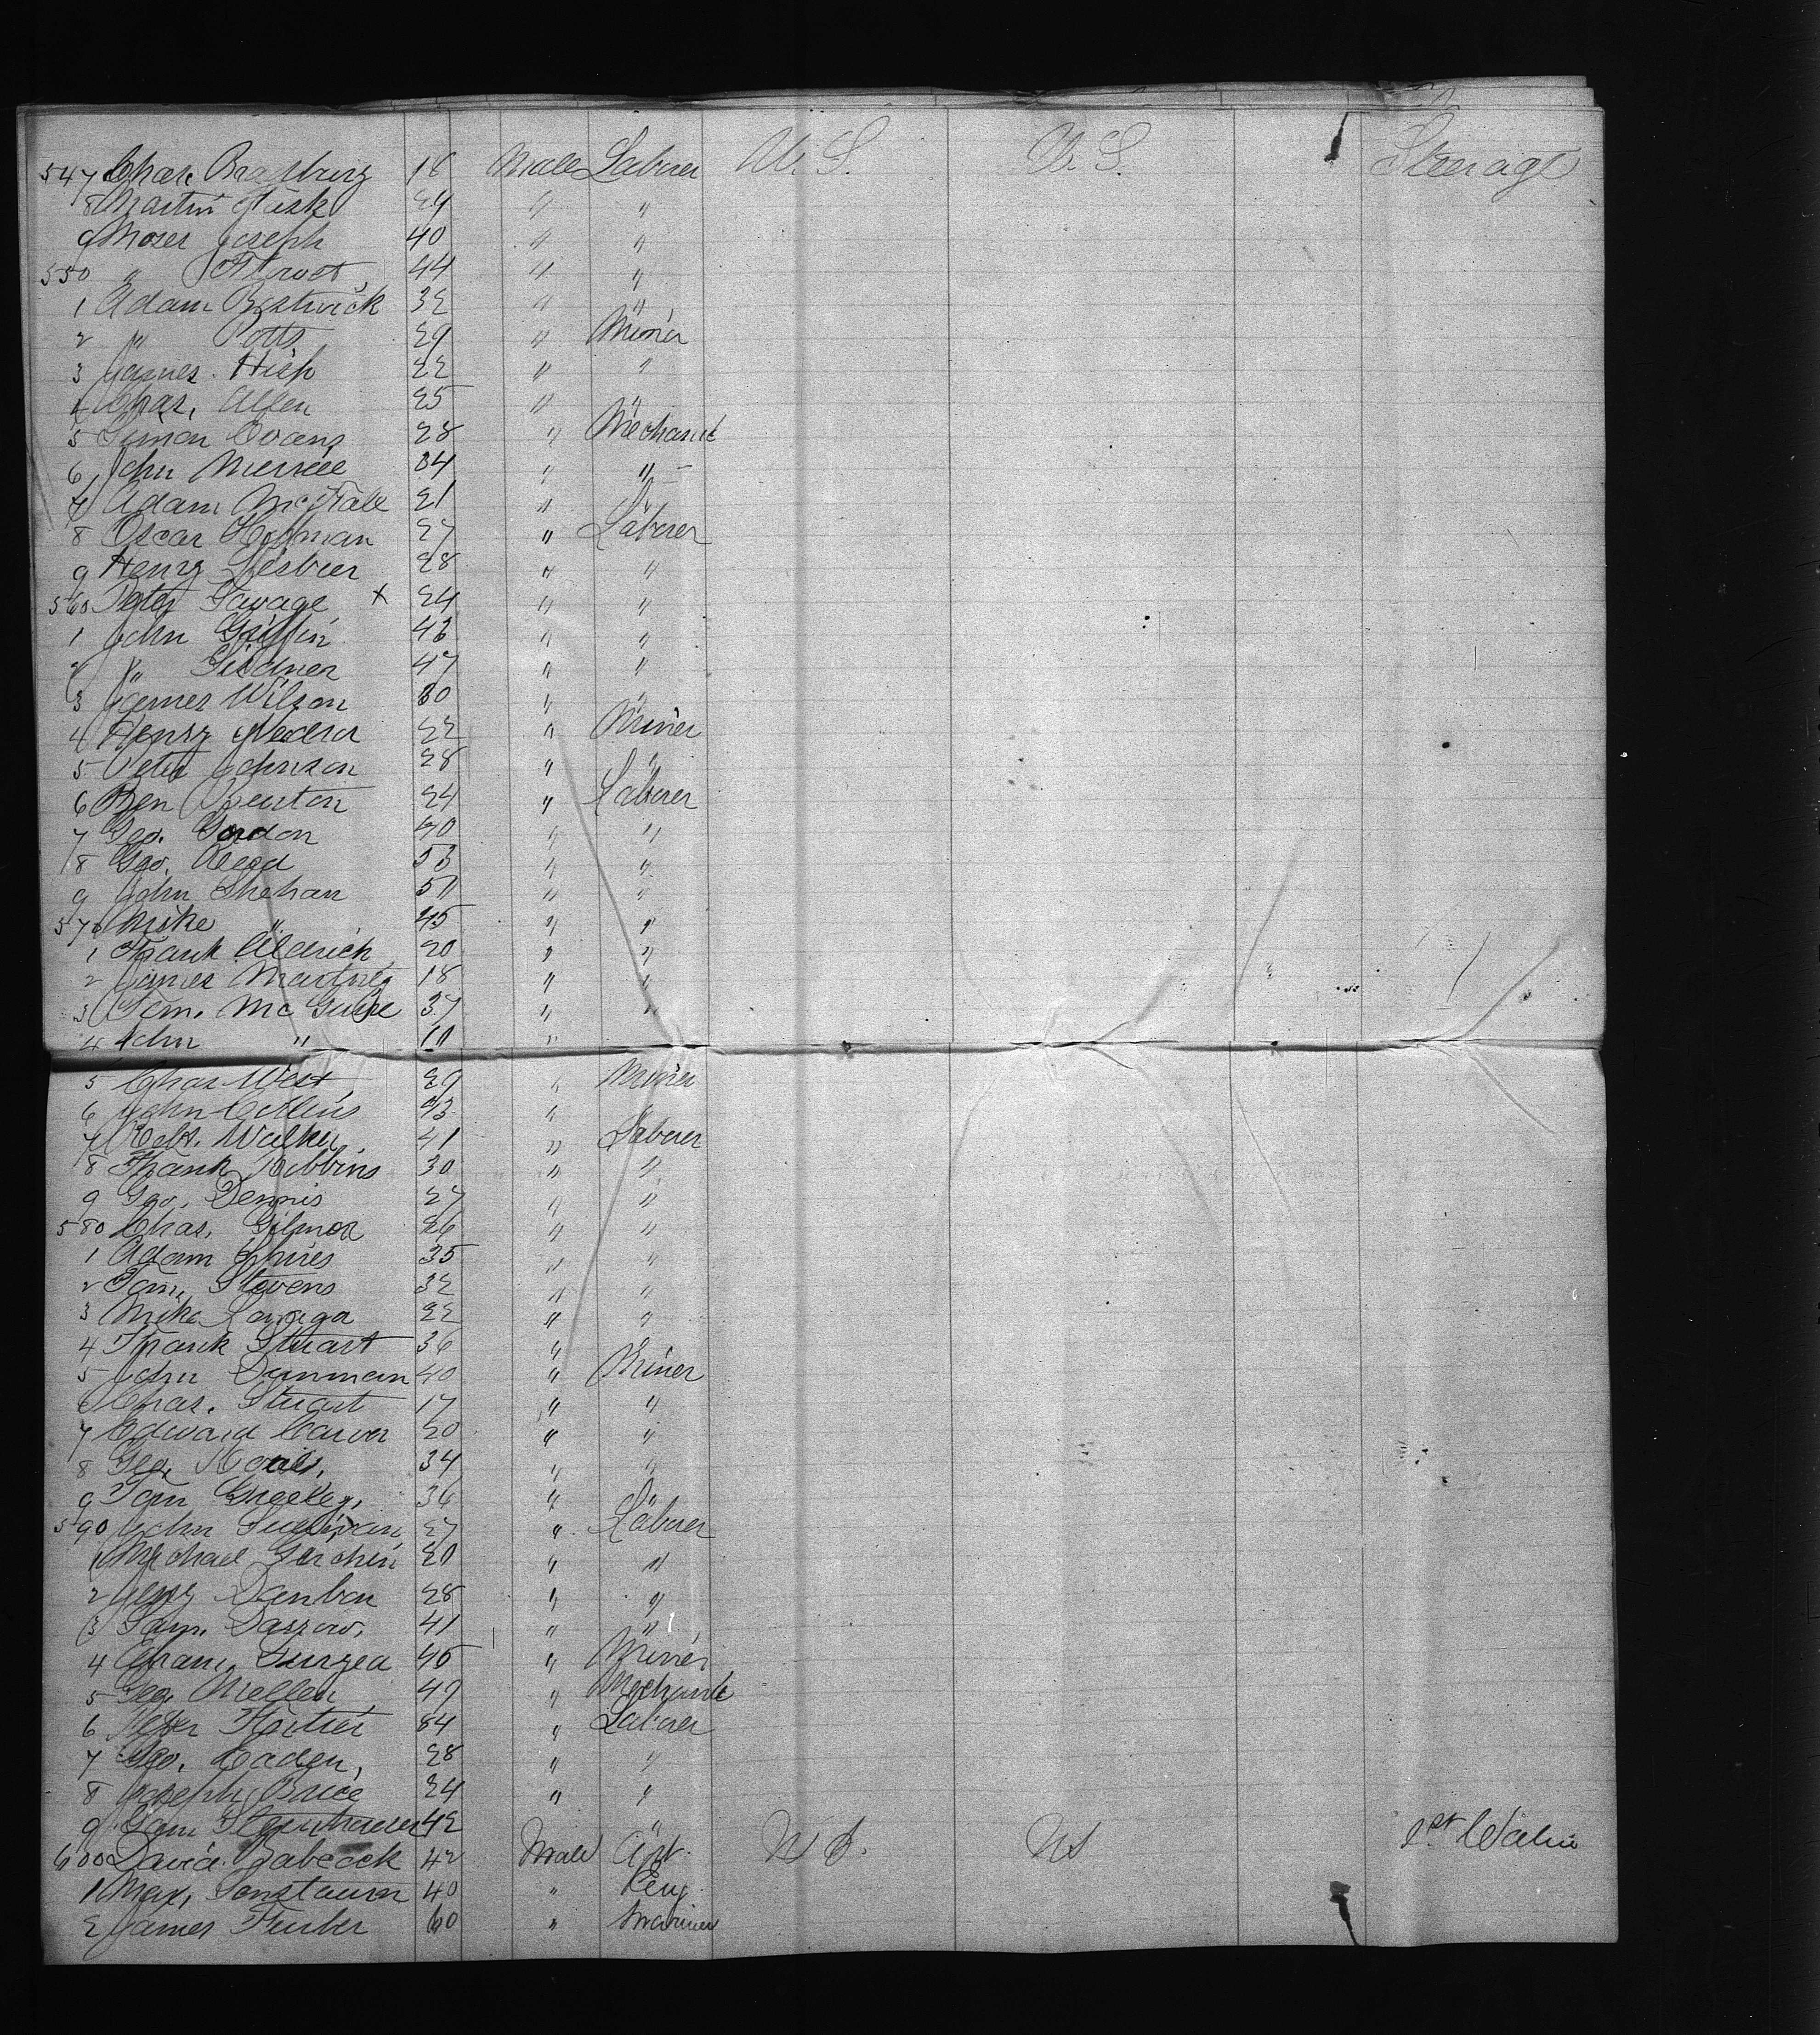 547 Chas. Bradburg 18 Male Laborer U. S. U. S. Steerage
8 Martin 29 " "
9 Moses Joseph 40 " "
550 " 44 " "
1 Adam Bestwick 32 " "
2 " Potts 29 " Miner
3 James Hish 22 " "
4 Chas. Allen 25 " "
5 Simon Evans 28 " Mechanic
6 John Merrill 34 " "
7 Adam McFall 21 " "
8 Oscar Hoffman 27 " Laborer
9 Henry 28 " "
560 Peter Savage x 24 " "
1 John Griffin 43 " "
2 " Gardner 47 " "
3 James Wilson 30 " "
4 Henry 22 " Miner
5 Peter Johnson 28 " "
6 Ben Benton 24 " Laborer
7 Geo. Gordon 40 " "
8 Geo. Reed 53 " "
9 John Shehan 51 " "
570 Mike " 45 " "
1 Frank Aldrich 20 " "
2 James Martinez 18 " "
3 Tom. McGuire 37 " "
4 John " 11 "
5 Chas West 29 " Miner
6 John Collins 43 " "
7 Robt. Walker 41 " Laborer
8 Frank Robbins 30 " "
9 Geo. Dennis 27 " "
580 Chas. Gilmor 26 " "
1 Adam Shires 35 " "
2 Tom. Stevens 32 " "
3 Mike 22 " "
4 Frank Stuart 36 " "
5 John Dunman 40 " Miner
6 Chas. Stuart 17 " "
7 Edward Carver 20 " "
8 Geo. 34 " "
9 Tom Greeley, 36 " "
590 John Sullivan 27 " Laborer
1 Michael 20 " "
2 Jerry Danbon 28 " "
3 Sam. 41 " "
4 45 " Miner
5 Geo. Mellen 49 " Mechanic
6 Peter 34 " Laborer
7 Geo. Caden, 28 " "
8 Joseph Brice 24 " "
9 Sam 42 "
600 David Babcock 42 Male U S. US 1st Cabin
1 Max, 40 "
2 James Furber 60 " Mariner